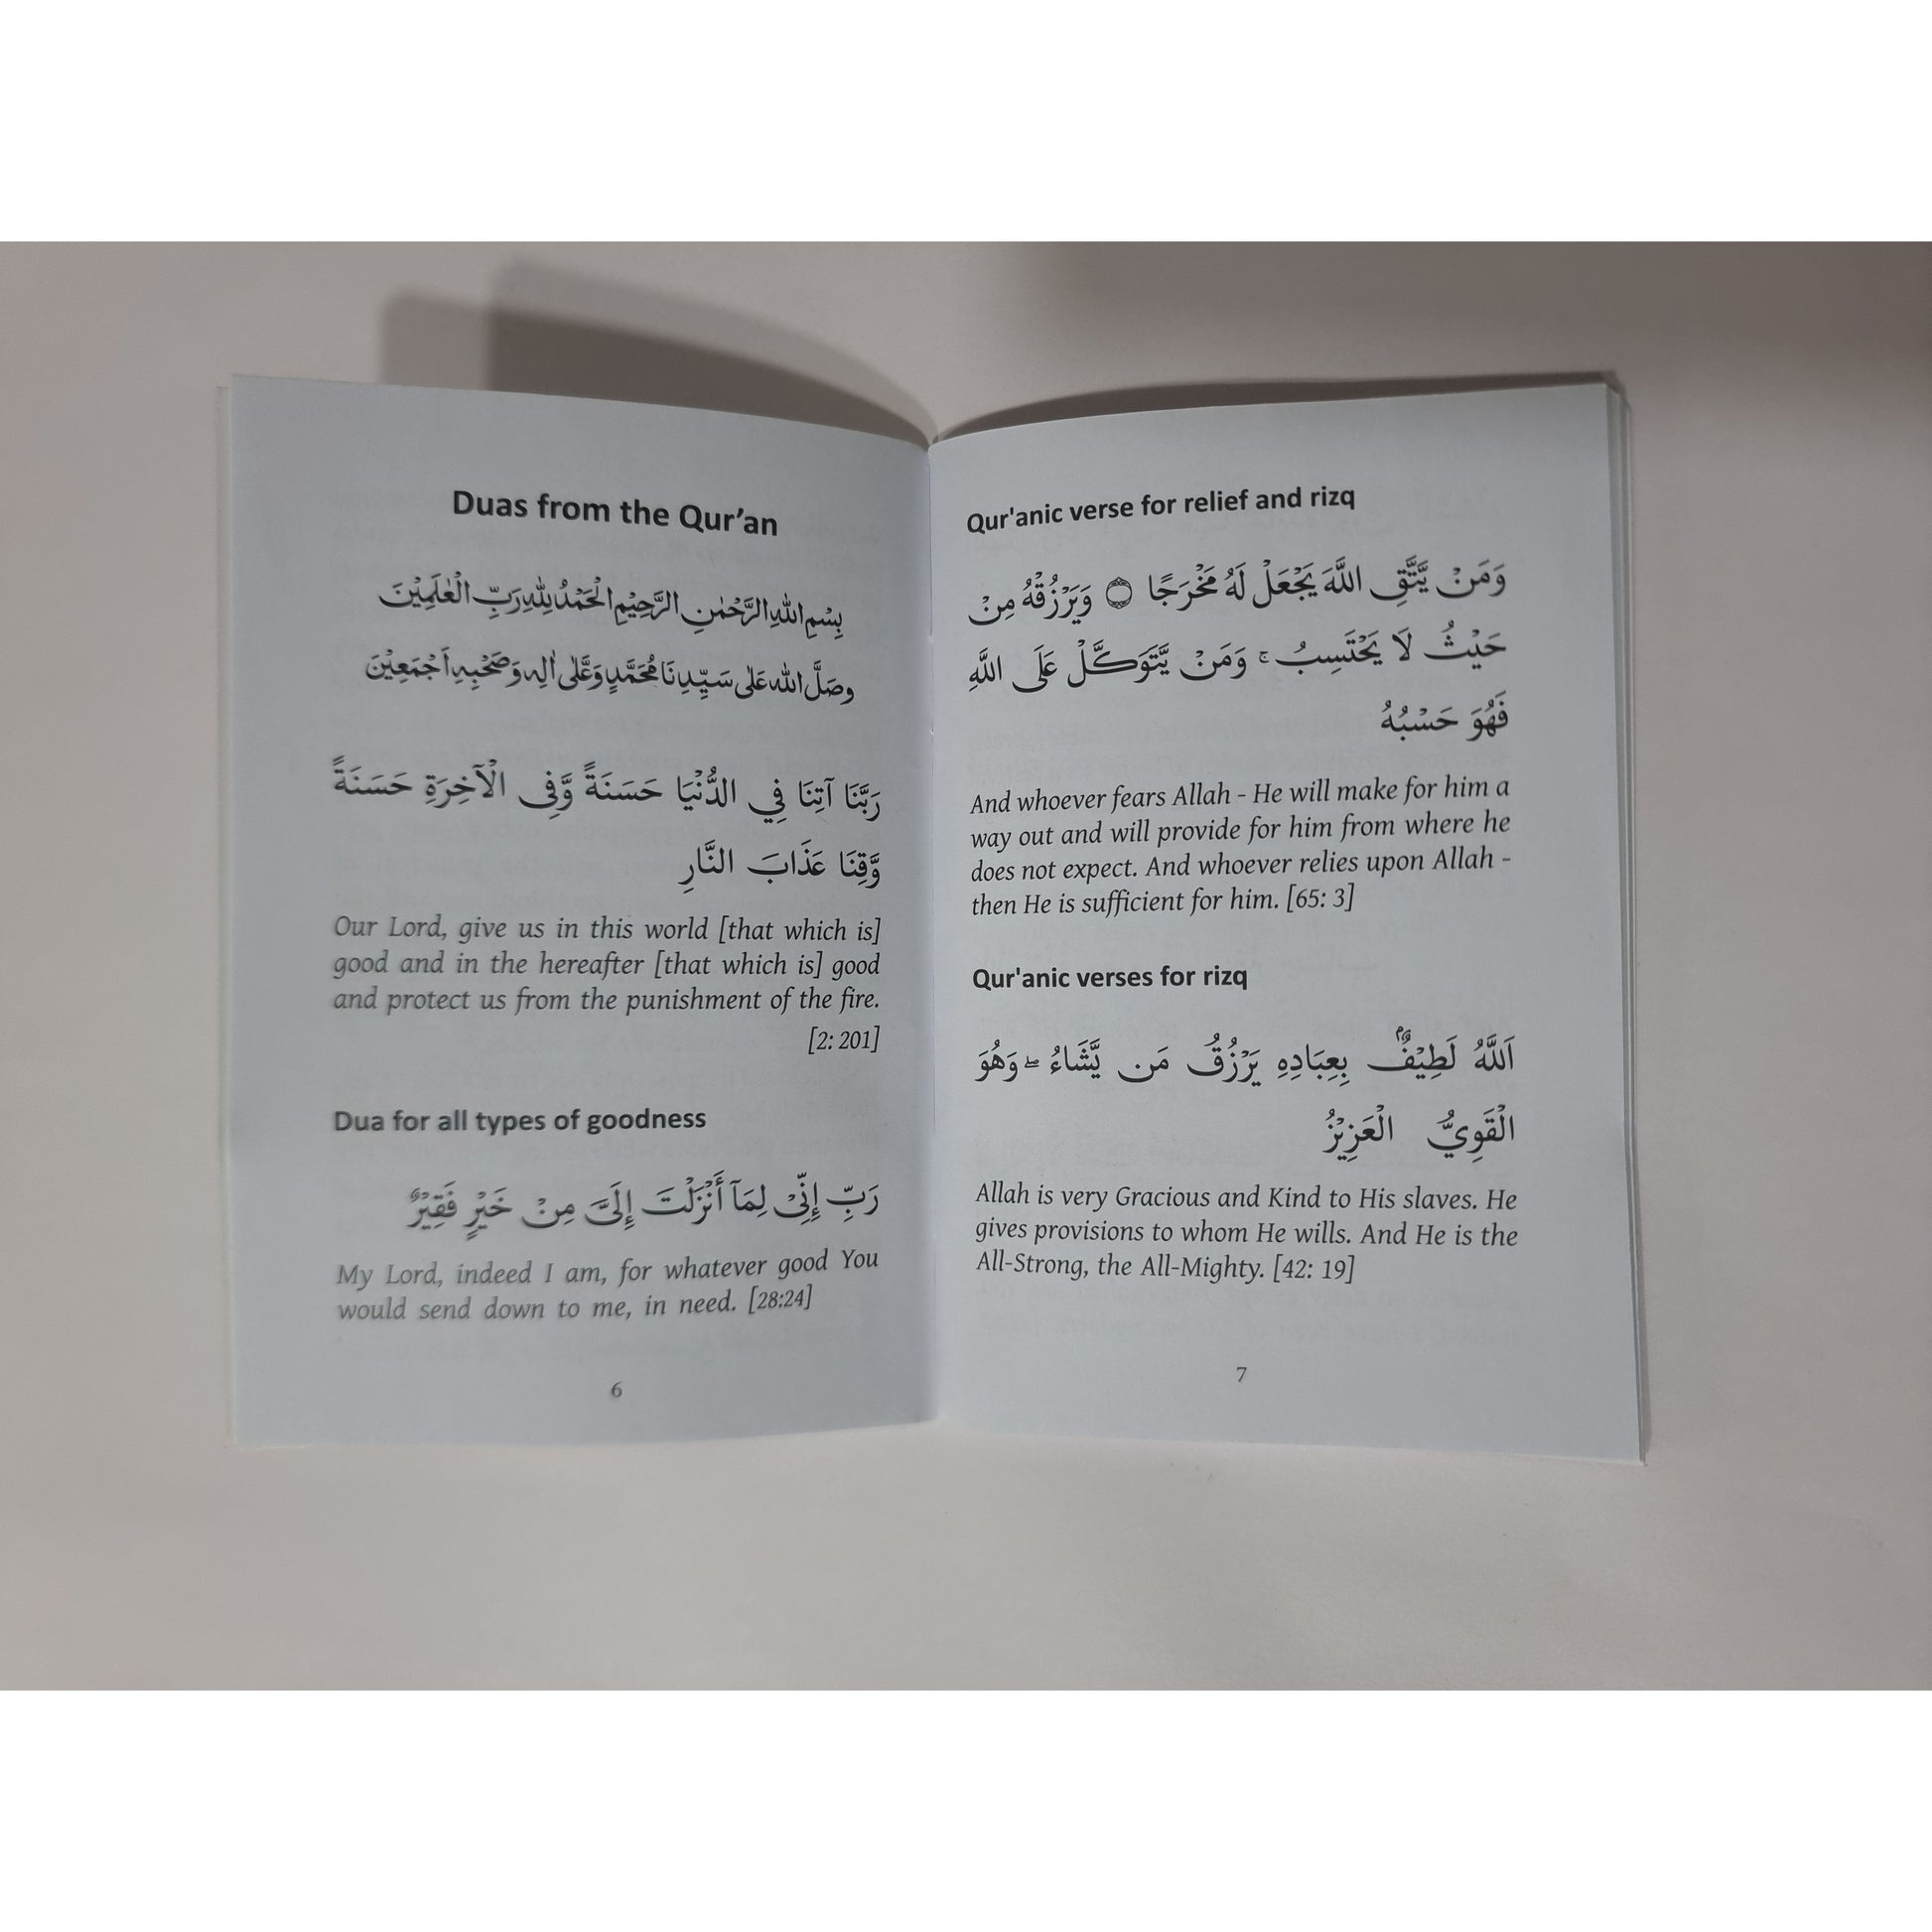 Duas from the Qur’an
بِسْمِ اللهِ الرَّحْمٰنِ الرَّحِيْمِ الْحَمْدُ لِلّٰهِ رَبِّ الْعٰلَمِيْنَ
وصَلَّ الله عَلٰى سَيِّدِنَا مُحَمَّدٍ وَّعَلٰى اٰلِهٖ وَصَحْبِهٖ اَجْمَعِيْنَ
رَبَّنَا آتِنَا فِي الدُّنْيَا حَسَنَةً وَّفِى الْآخِرَةِ حَسَنَةً
وَّقِنَا عَذَابَ النَّارِ
Our Lord, give us in this world [that which is]
good and in the hereafter [that which is] good
and protect us from the punishment of the fire.
[2: 201]
Dua for all types of goodness
رَبِّ إِنِّىْ لِمَآ أَنْزَلْتَ إِلَىَّ مِنْ خَيْرٍ فَقِيْرٌ
My Lord, indeed I am, for whatever good You
would send down to me, in need. [28:24]
6
Qur'anic verse for relief and rizq
وَمَنْ يَّتَّقِ اللَّهَ يَجْعَلْ لَهُ مَخْرَجًا ۝ وَيَرْزُقْهُ مِنْ
حَيْثُ لَا يَحْتَسِبُ ۚ وَمَنْ يَّتَوَكَّلْ عَلَى اللَّهِ
فَهُوَ حَسْبُهُ
And whoever fears Allah - He will make for him a
way out and will provide for him from where he
does not expect. And whoever relies upon Allah -
then He is sufficient for him. [65: 3]
Qur'anic verses for rizq
اَللَّهُ لَطِيْفٌۢ بِعِبَادِهِ يَرْزُقُ مَن يَّشَاءُ ۖ وَهُوَ
الْقَوِيُّ الْعَزِيْزُ
Allah is very Gracious and Kind to His slaves. He
gives provisions to whom He wills. And He is the
All-Strong, the All-Mighty. [42: 19]
7